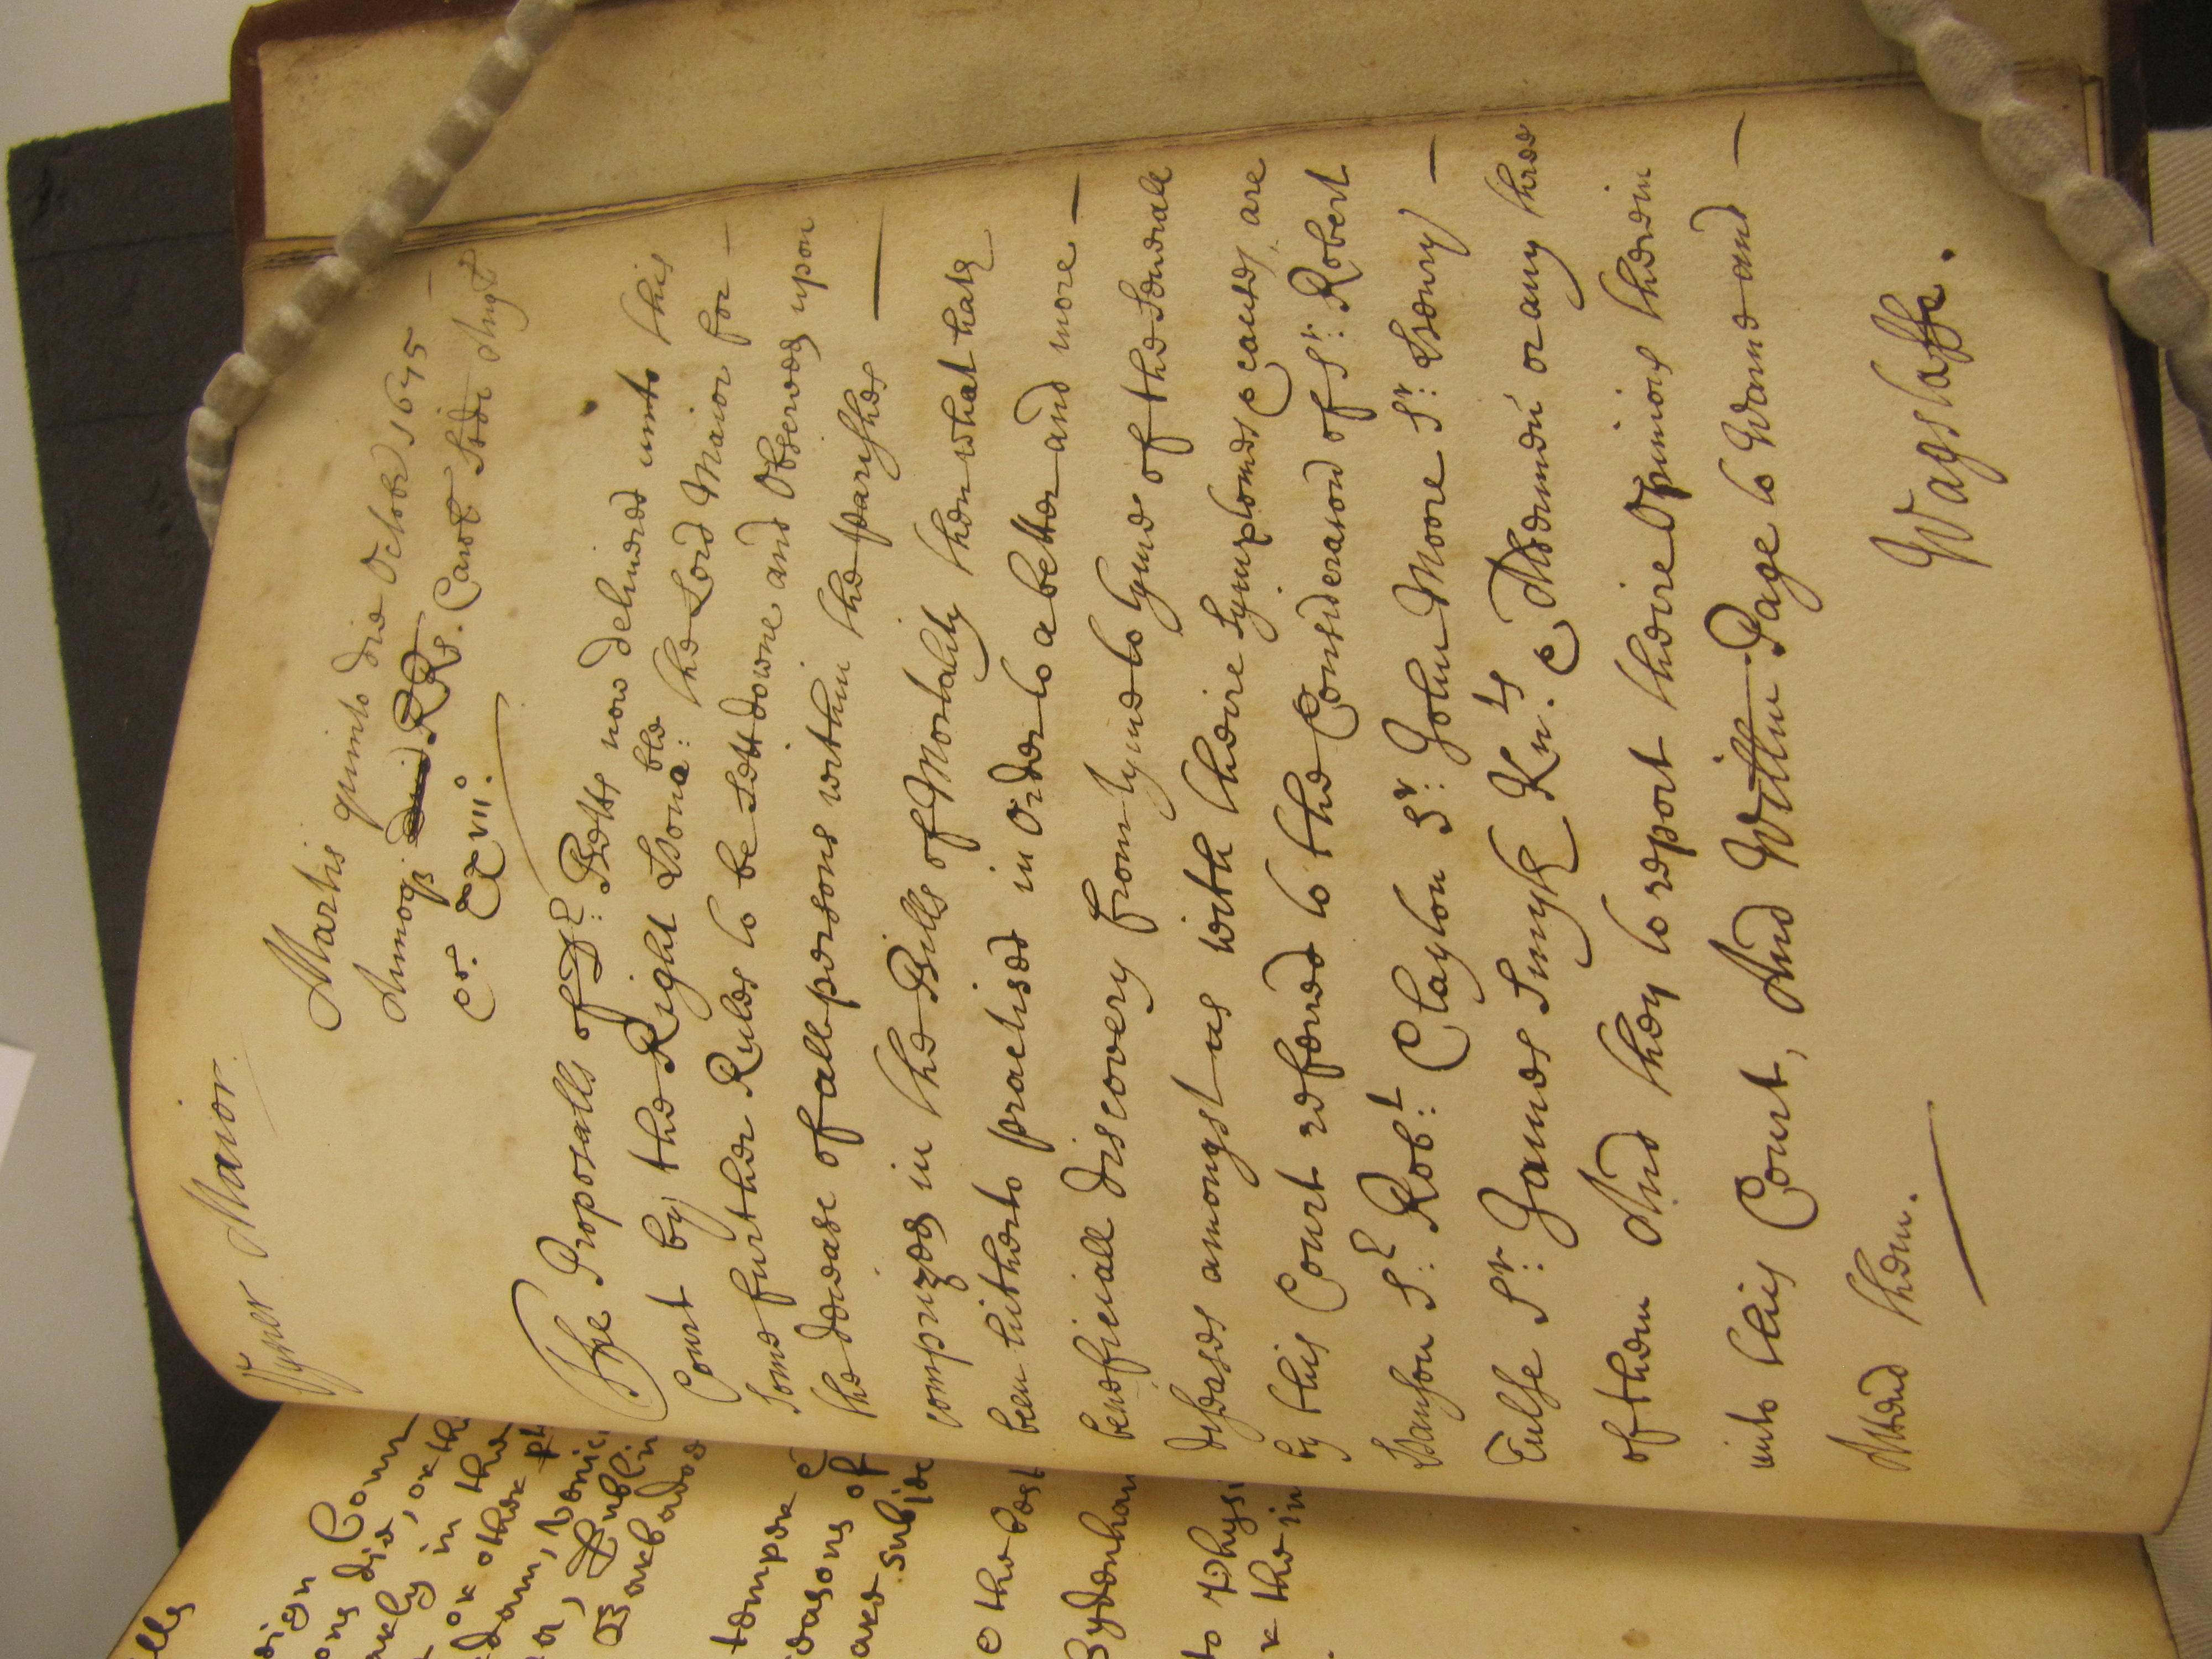 Vyner Maior
Martis quinto die Octobr 1675
Annoq R Rs. Caroli Scdi Angl
&c. xxvii°.
The Proposalls of Dr: Betts now delivered unto this
Court by the Right Honoble: the Lord Maior for
some further Rules to be sett downe and Observed upon
the decease of all persons within the parishes
comprized in the Bills of Mortality then what hath
been hitherto practised in Order to a better and more
beneficiall discovery from tyme to tyme of the severall
diseases amongst us with theire Symptomes & causes, are
by this Court referred to the Consideracon of Sr: Robert
Hanson Sr: Robt: Clayton Sr: John Moore Sr: Henry
Tulse Sr: James Smyth Knts. & Aldermen or any three
of them And they to report theire Opinions therein
unto this Court, And Willm Page to warne and
Attend them.
Wagstaffe.
lls
eign Coun
ons die, or th
arkly in the
or other p
dam, Venic
a, Dublin
Barbadoe
temper &
seasons of
are subje
& the bes
Sydenham
to Physi
r the in